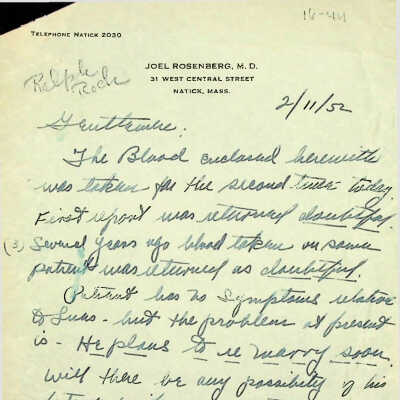 16-44
TELEPHONE NATICK 2030
JOEL ROSENBERG, M.D.
31 WEST CENTRAL STREET
NATICK, MASS.
Ralph
Rock
2/11/52
Gentlemen.
The Blood enclosed herewith
was taken for the second time today
First report was returned doubtful.
(3) Several years ago blood taken on same
patient was returned as doubtful.
Patient has no symptoms relative
to Lues - but the problem at present
is - He plans to re marry soon.
Will there be any possibility of his